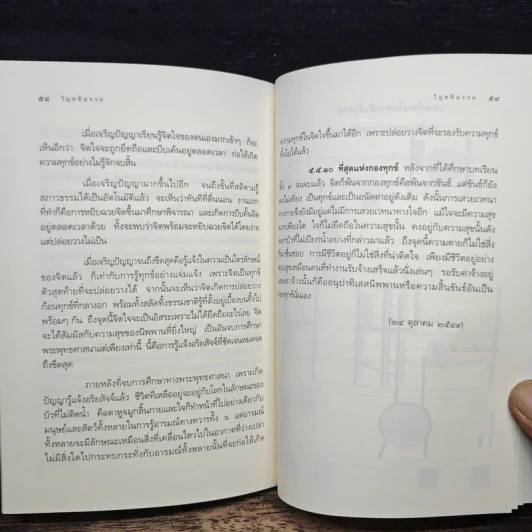 ๕๘ วิมุตติมรรค
เมื่อเจริญปัญญาเรียนรู้จิตใจของตนเองมากเข้าๆ ก็จะ
เห็นอีกว่า จิตใจจะถูกยึดถือและบีบเค้นอยู่ตลอดเวลา ก่อให้เกิด
ความทุกข์อย่างไม่รู้จักจบสิ้น
เมื่อเจริญปัญญามากขึ้นไปอีก จนถึงขั้นที่สติตามรู้
สภาวธรรมได้เป็นอัตโนมัติแล้ว จะพบว่าทันทีที่ตื่นนอน งานแรก
ที่ทำก็คือการหยิบฉวยจิตขึ้นมาศึกษาพิจารณา และเกิดการบีบคั้นจิต
อยู่ตลอดเวลาด้วย ทั้งจะพบว่าจิตพร้อมจะหยิบฉวยจิตได้โดยง่าย
แต่ปล่อยวางไม่เป็น
เมื่อเจริญปัญญาจนถึงขีดสุดคือรู้แจ้งในความเป็นไตรลักษณ์
ของจิตแล้ว ก็เท่ากับการรู้ทุกข์อย่างแจ่มแจ้ง เพราะจิตเป็นทุกข์
ตัวสุดท้ายที่จะปล่อยวางได้ จากนั้นจะเห็นว่าจิตเกิดการปล่อยวาง
ก้อนทุกข์ที่กลางอก พร้อมทั้งสลัดทิ้งธรรมชาติรู้ที่ตั้งอยู่เบื้องบนทิ้งไป
พร้อมๆ กัน ถึงจุดนี้จิตใจจะเป็นอิสระเพราะไม่ได้ยึดถืออะไรเลย จิต
จะได้สัมผัสกับความสุขของนิพพานที่ยิ่งใหญ่ เป็นอันจบการศึกษา
พระพุทธศาสนาแต่เพียงเท่านี้ นี้คือการรู้แจ้งอริยสัจจ์ที่ชัดเจนหมดจด
ถึงขีดสุด
ภายหลังที่จบการศึกษาทางพระพุทธศาสนา เพราะเกิด
ปัญญารู้แจ้งอริยสัจจ์แล้ว ชีวิตที่เหลืออยู่จะอยู่กับโลกในลักษณะของ
บัวที่ไม่ติดน้ำ คือตาหูจมูกลิ้นกายและใจก็ทำหน้าที่ไปอย่างเดียวกับ
มนุษย์และสัตว์ทั้งหลาย ในการรู้อารมณ์ทางทวารทั้ง ๖ แต่อารมณ์
ทั้งหลายจะมีลักษณะเหมือนสิ่งที่เคลื่อนไหวไปในอากาศที่ว่างเปล่า
ไม่มีสิ่งใดไปกระทบกระทั่งกับอารมณ์ทั้งหลายนั้นที่จะก่อให้เกิด
วิมุตติมรรค ๕๙
ความทุกข์ในจิตใจขึ้นมาได้อีก เพราะปล่อยวางจิตที่จะรองรับความทุกข์
ทิ้งไปได้แล้ว
๕.๕.๑๐ ที่สุดแห่งกองทุกข์ หลังจากที่ได้ศึกษาบทเรียน
ทั้ง ๓ จนจบแล้ว จิตก็พ้นจากกองทุกข์คือพ้นจากขันธ์ แต่ขันธ์ก็ยัง
ไม่เที่ยง เป็นทุกข์และเป็นอนัตตาอยู่ดังเดิม ดังนั้นการเสวยเวทนา
ทางกายจึงยังมีอยู่แต่ไม่มีการเสวยเวทนาทางใจอีก แม้ใจจะมีความสุข
มากเพียงใด ใจก็ไม่ยึดถือในความสุขนั้น คงอยู่กับความสุขนั้นดัง
ดอกบัวที่ไม่เปียกน้ำอย่างที่กล่าวมาแล้ว ถึงจุดนี้ความตายก็ไม่ใช่สิ่ง
ที่น่าชื่นชอบ การมีชีวิตอยู่ก็ไม่ใช่สิ่งที่น่าติดใจ เพียงมีชีวิตอยู่อย่าง
สงบสุขเหมือนคนที่ทำงานรับจ้างเสร็จแล้วนั่งเล่นๆ รอรับค่าจ้างอยู่
และค่าจ้างนั้นก็คืออนุปาทิเสสนิพพานหรือความสิ้นขันธ์อันเป็น
กองทุกข์นั่นเอง
(๒๔ ตุลาคม ๒๕๔๙)